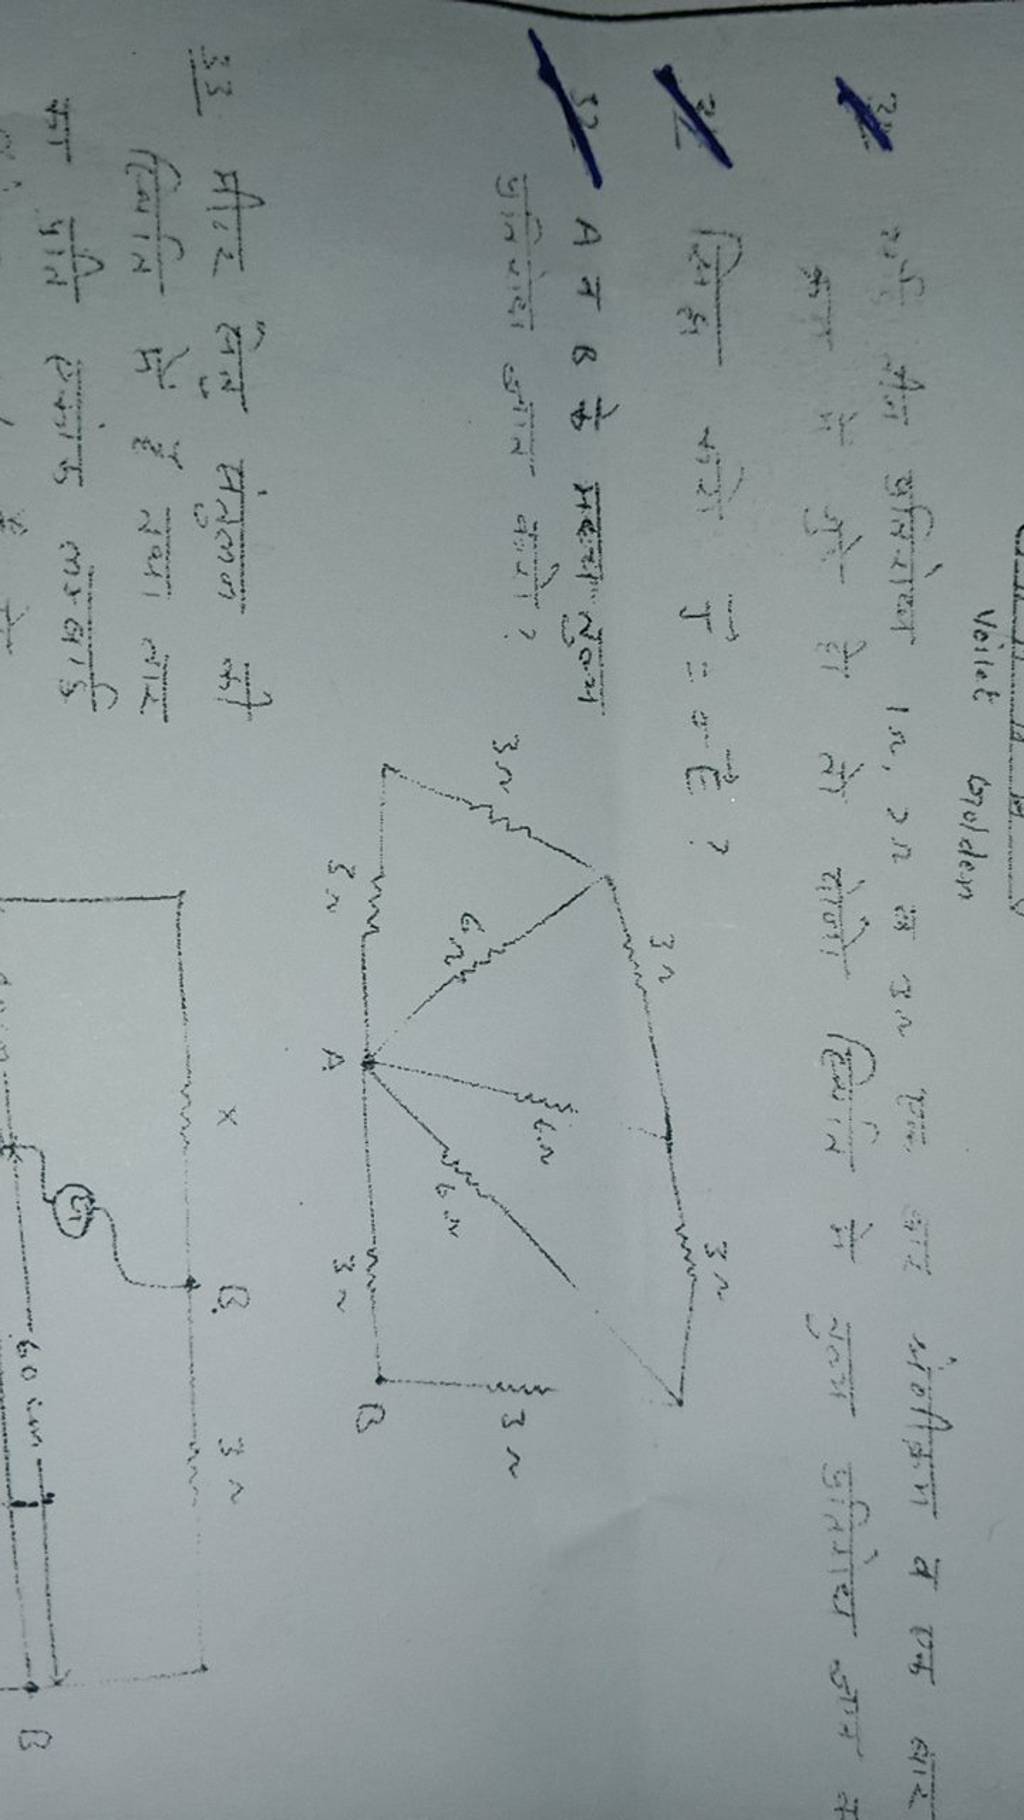 Voilet Golden
यदि तीन प्रतिरोध 1Ω, 2Ω व 3Ω एक बार श्रेणीक्रम व एक बार
क्रम में जुड़े हो तो दोनो स्थिति में तुल्य प्रतिरोध ज्ञात
सिद्ध करो J = σE ?
32 A व B के मध्य तुल्य
प्रतिरोध ज्ञात करो ?
3Ω
3Ω
3Ω
6Ω
6Ω
6Ω
3Ω
3Ω
3Ω
A
B
33 मीटर सेतु संतुलन की
स्थिति में है तथा तार
का प्रति एकांक लम्बाई
X
B
3Ω
G
60 cm
B